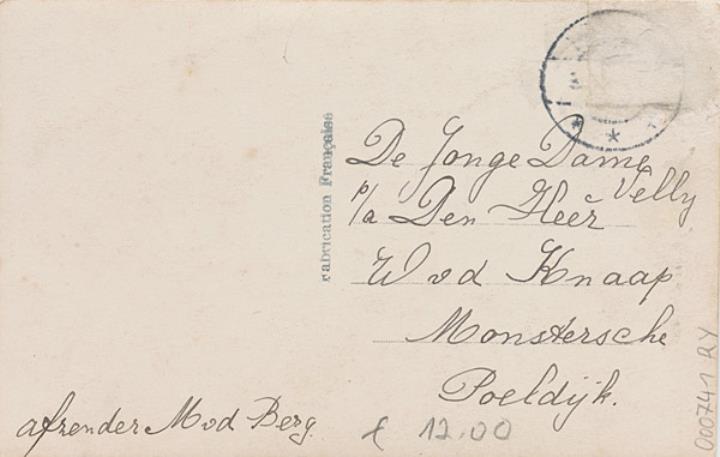 De Jonge Dame
Velly
p/a Den Heer
W v d Knaap
Monstersche
Poeldijk.
afzender M v d Berg.
Fabrication Française
£ 12.00
000741 RY